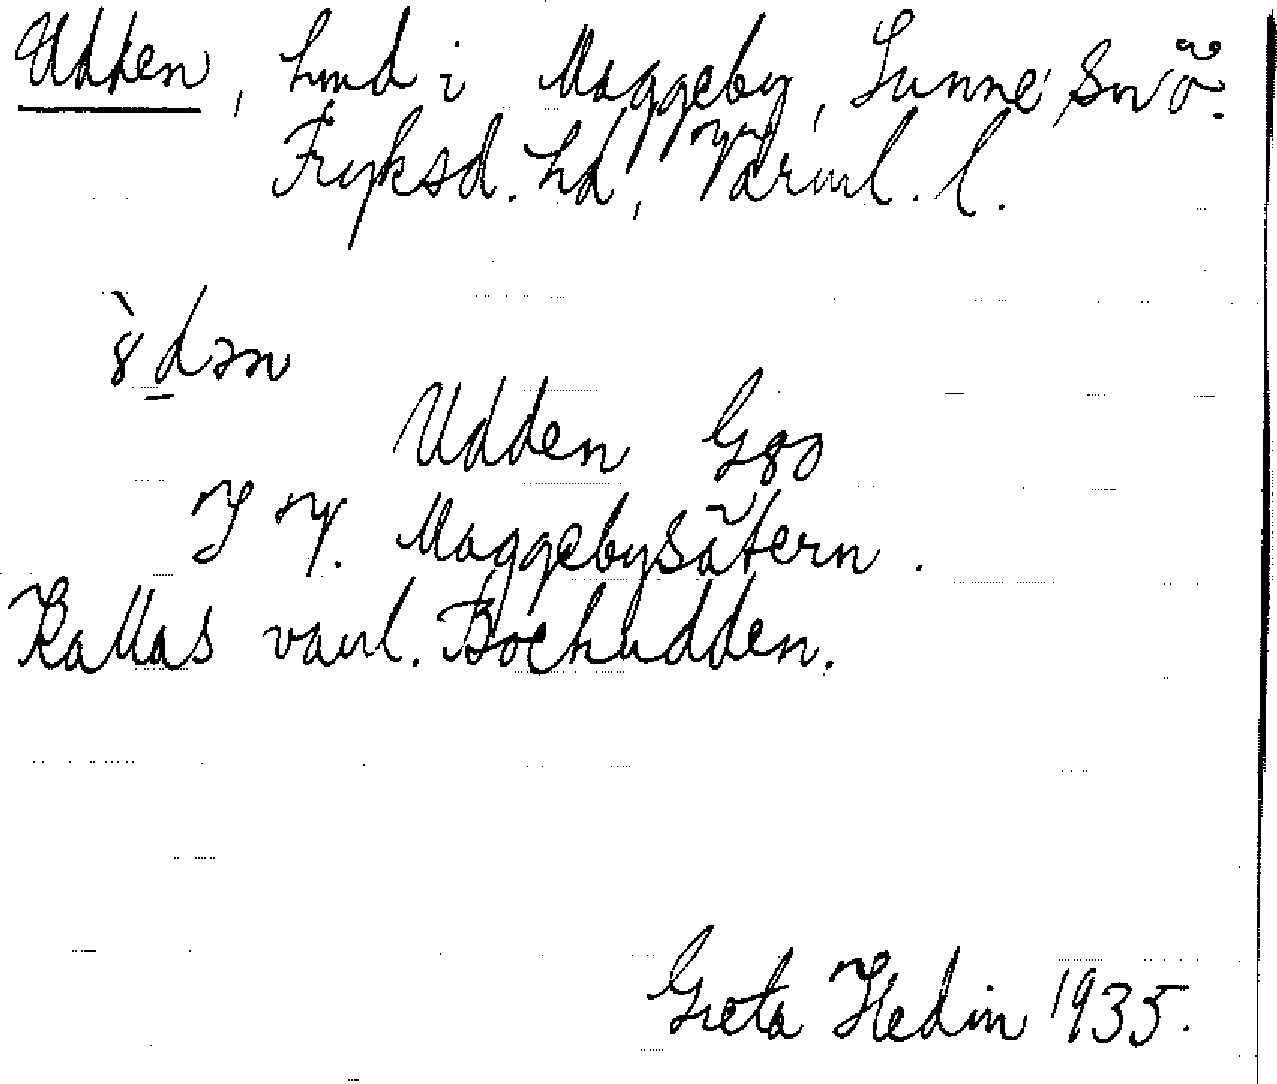 Udden, hmd i Maggeby, Sunne sn ö.
Fryksd. hd, Värml. l.
ȣ̀dən
Udden G80
I V. Maggebysätern.
Kallas vanl. Bochudden.
Greta Hedin 1935.